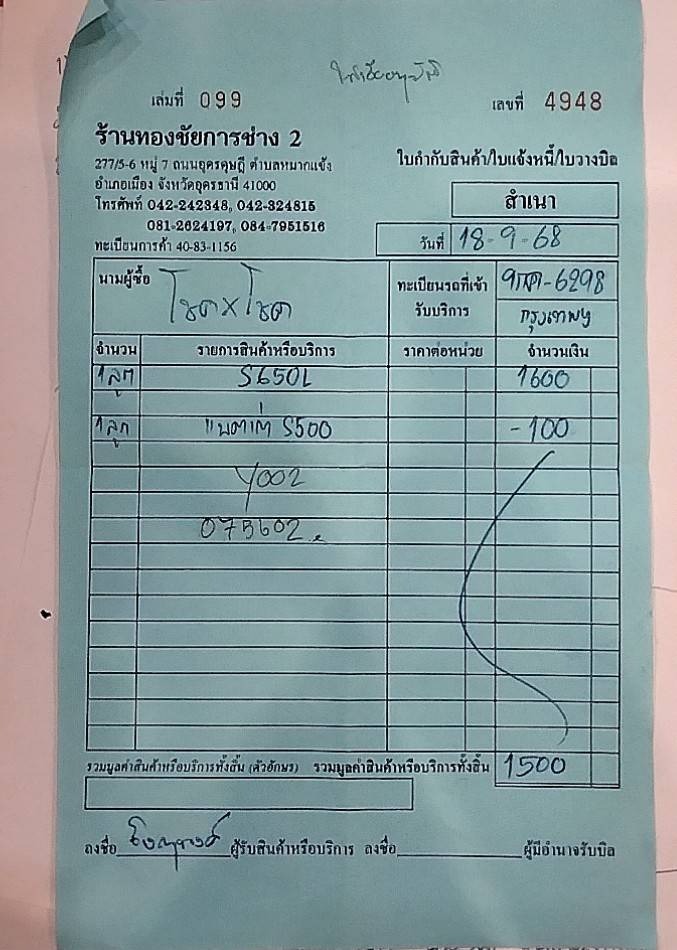 เล่มที่ 099
เลขที่ 4948
ร้านทองชัยการช่าง 2
277/5-6 หมู่ 7 ถนนอุดรดุษฎี ตำบลหมากแข้ง
อำเภอเมือง จังหวัดอุดรธานี 41000
โทรศัพท์ 042-242348, 042-324815
081-2624197, 084-7951516
ทะเบียนการค้า 40-83-1156
ใบกำกับสินค้า/ใบแจ้งหนี้/ใบวางบิล
สำเนา
วันที่ 18-9-68
นามผู้ซื้อ โชคxโชค
ทะเบียนรถที่เข้ารับบริการ
-6298
กรุงเทพฯ
จำนวน รายการสินค้าหรือบริการ ราคาต่อหน่วย จำนวนเงิน
1ลูก S650L 1600
1ลูก แบตเก่า S500 -100
Y002
075602
รวมมูลค่าสินค้าหรือบริการทั้งสิ้น (ตัวอักษร) รวมมูลค่าสินค้าหรือบริการทั้งสิ้น 1500
ลงชื่อ ผู้รับสินค้าหรือบริการ ลงชื่อ ผู้มีอำนาจรับบิล